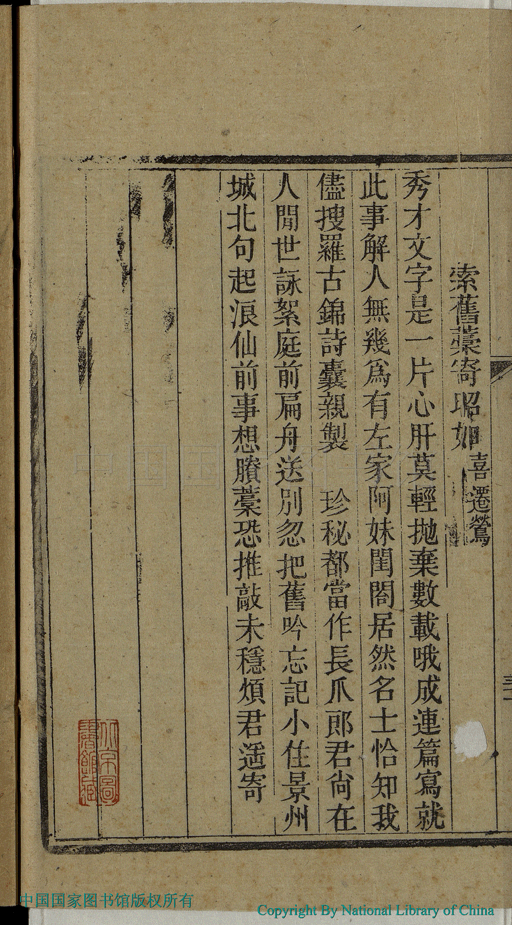 索舊藳寄昭如 喜遷鶯
秀才文字是一片心肝莫輕抛棄數載哦成連篇寫就
此事解人無幾爲有左家阿妹閨閤居然名士恰知我
儘搜羅古錦詩囊親製 珍秘都當作長爪郎君尙在
人閒世詠絮庭前扁舟送別忽把舊吟忘記小住景州
城北句起浪仙前事想賸藳恐推敲未穩煩君遥寄
中国国家图书馆版权所有
Copyright By National Library of China